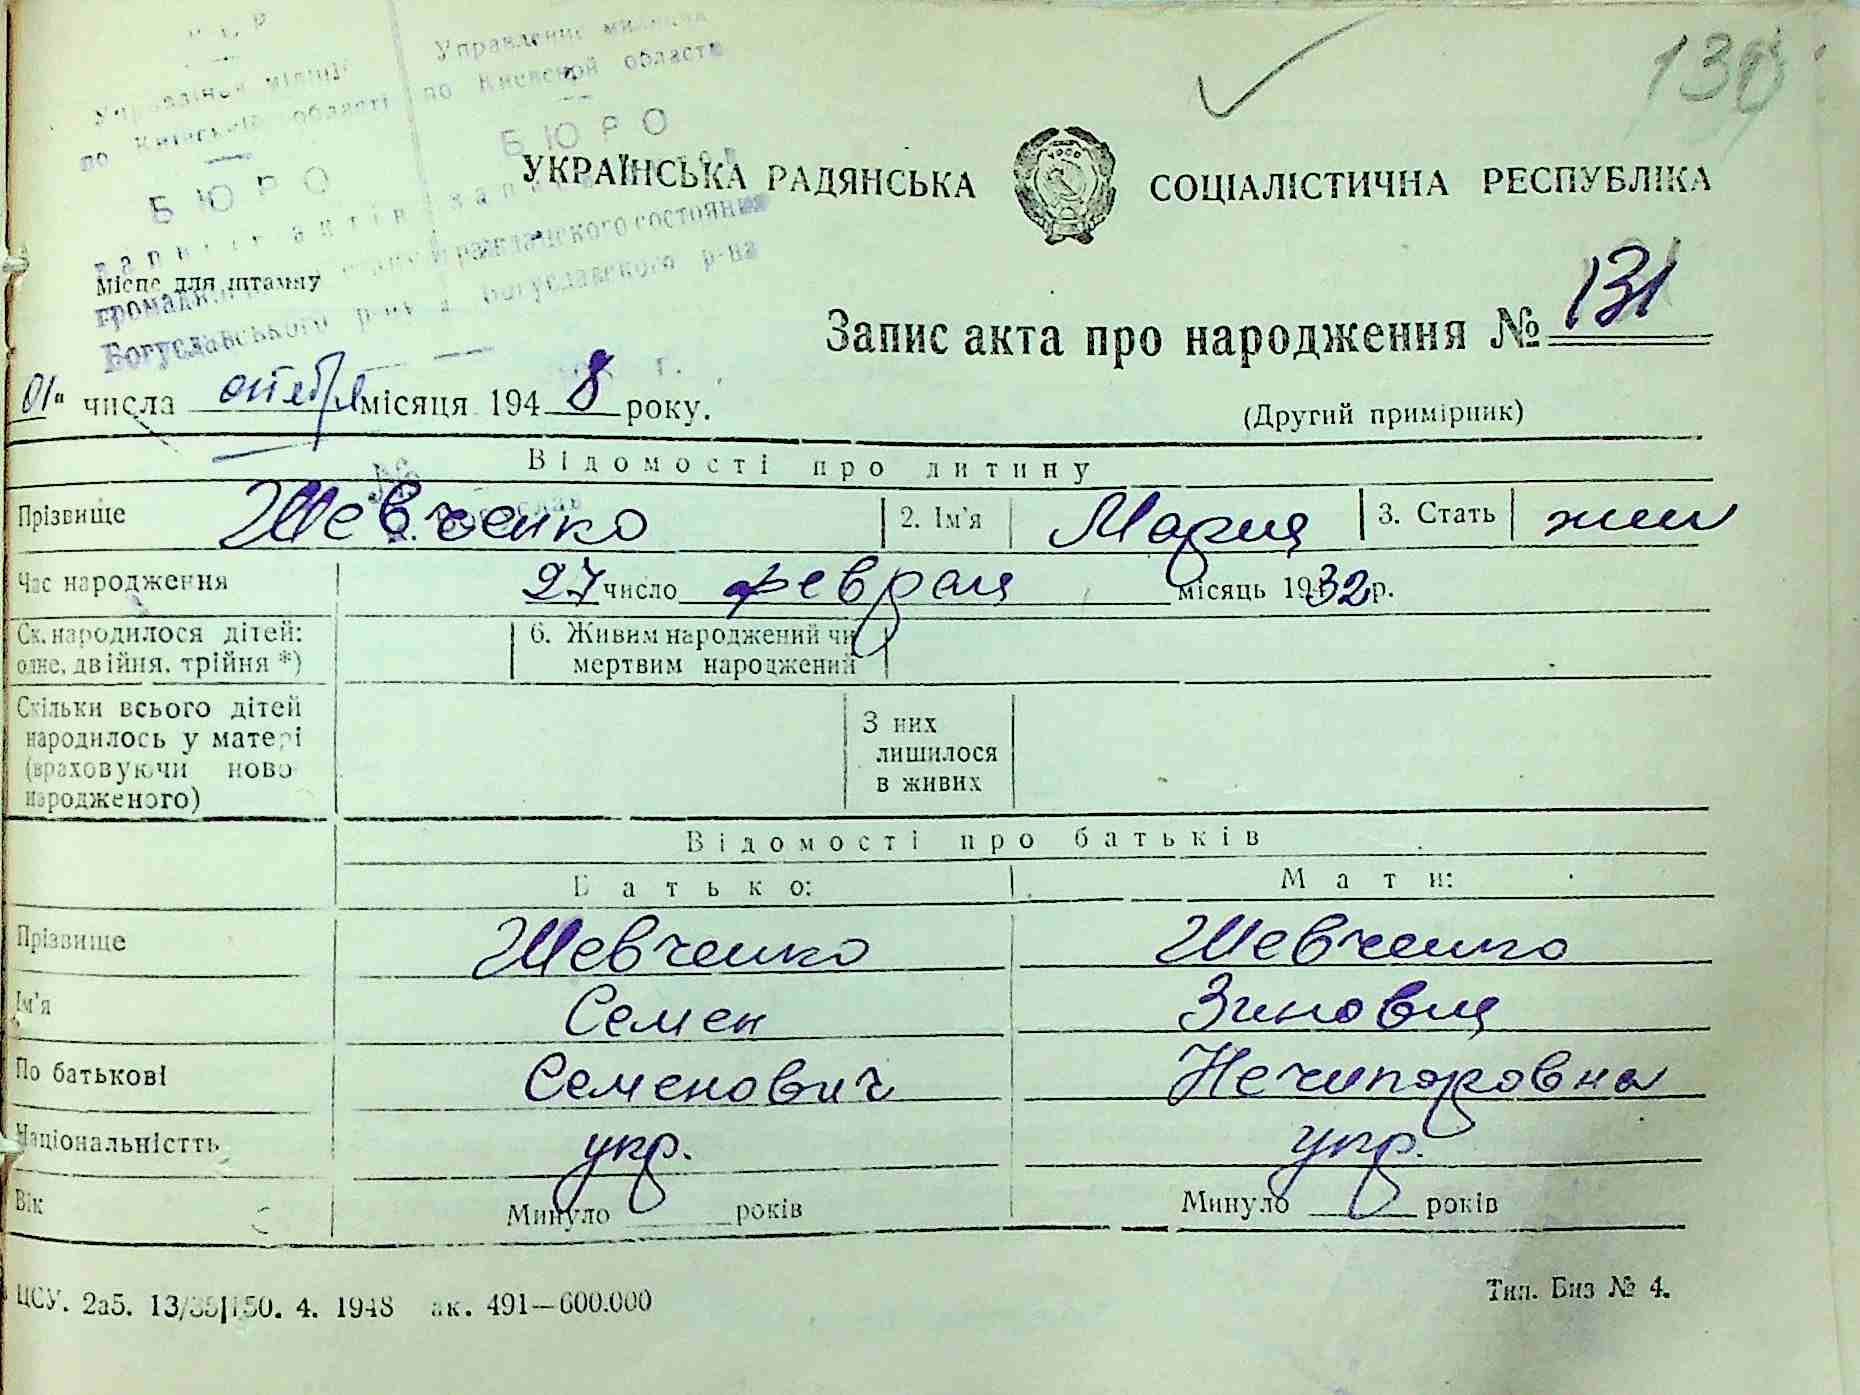 Управление милиции
по Киевской области
БЮРО
Управління міліції
по Київській області
БЮРО
130
УКРАЇНСЬКА РАДЯНСЬКА СОЦІАЛІСТИЧНА РЕСПУБЛІКА
гражданского состояния
Місце для штампу
Богуславского р-на
Богуславського р-ну
Запис акта про народження № 131
"01" числа октября місяця 1948 року.
(Другий примірник)
Відомості про дитину
Прізвище Шевченко 2. Ім'я Мария 3. Стать жен
Час народження 27 число февраля місяць 1932 р.
Ск. народилося дітей: 6. Живим народжений чи
одне, двійня, трійня *) мертвим народжений
Скільки всього дітей З них
народилось у матері лишилося
(враховуючи ново- в живих
народженого)
Відомості про батьків
Батько: Мати:
Прізвище Шевченко Шевченко
Ім'я Семен Зиновия
По батькові Семенович Нечипоровна
Національністть укр. укр.
Вік Минуло років Минуло років
ЦСУ. 2а5. 4. 1948 ак. 491—600.000 Тип. Биз № 4.